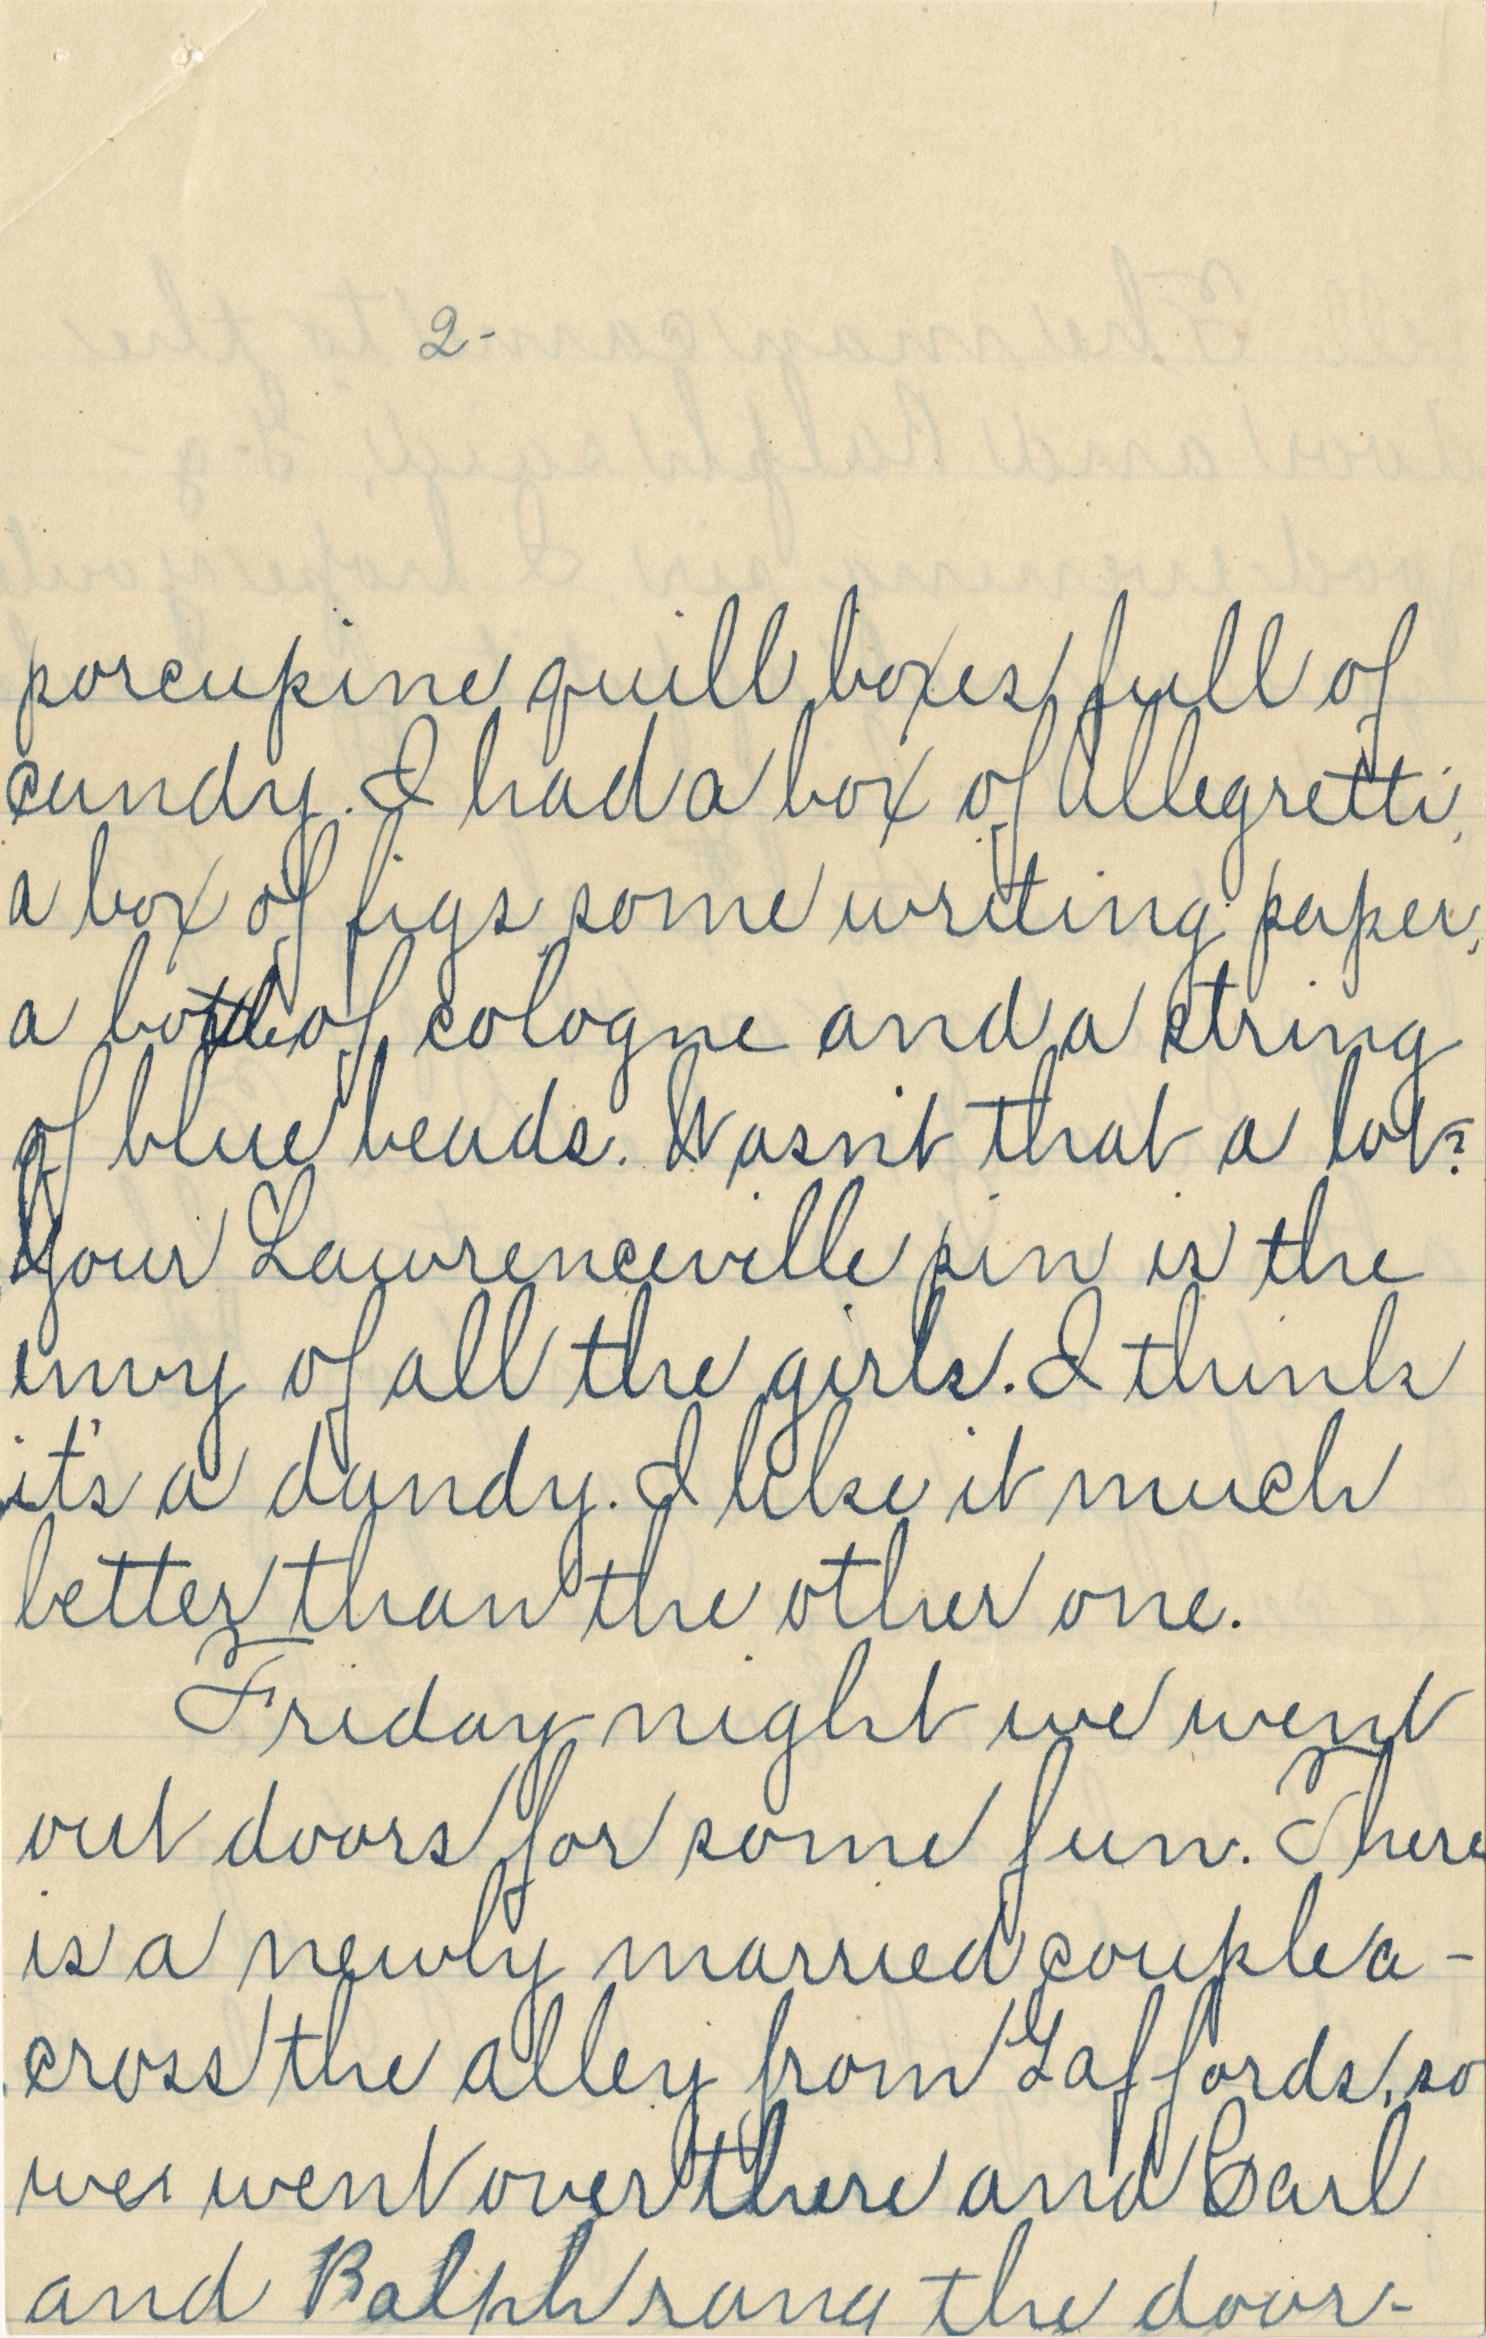 2-
porcupine quill boxes full of
candy. I had a box of Allegretti,
a box of figs, some writing paper,
a bottle of cologne and a string
of blue beads. Wasn't that a lot?
Your Lawrenceville pin is the
envy of all the girls. I think
it's a dandy. I like it much
better than the other one.
Friday night we went
out doors for some fun. There
is a newly married couple a-
cross the alley from Gaffords, so
we went over there and Carl
and Ralph rang the door-